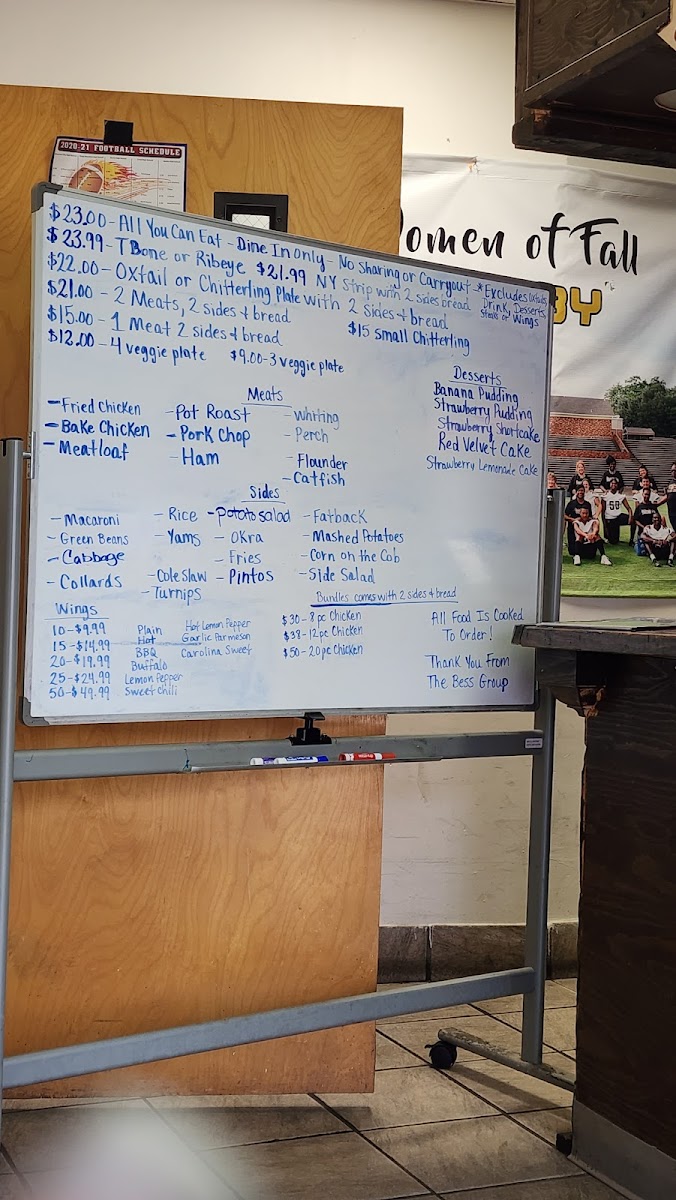 2020-21 FOOTBALL SCHEDULE
omen of Fall
BY
$23.00 - All You Can Eat - Dine In only - No Sharing or Carryout * Excludes Oxtails,
Drink, Desserts,
Steaks or Wings
$23.99 - T Bone or Ribeye $21.99 NY Strip with 2 sides bread
$22.00 - Oxtail or Chitterling Plate with 2 Sides + bread
$21.00 - 2 Meats, 2 sides + bread
$15 small Chitterling
$15.00 - 1 Meat 2 sides + bread
$12.00 - 4 veggie plate $9.00 - 3 veggie plate
Meats
- Fried Chicken
- Bake Chicken
- Meatloaf
- Pot Roast
- Pork Chop
- Ham
- Whiting
- Perch
- Flounder
- Catfish
Desserts
Banana Pudding
Strawberry Pudding
Strawberry Shortcake
Red Velvet Cake
Strawberry Lemonade Cake
Sides
- Macaroni
- Green Beans
- Cabbage
- Collards
- Rice
- Yams
- Cole Slaw
- Turnips
- Potato salad
- Okra
- Fries
- Pintos
- Fatback
- Mashed Potatoes
- Corn on the Cob
- Side Salad
Wings
10 - $9.99
15 - $14.99
20 - $19.99
25 - $24.99
50 - $49.99
Plain
Hot
BBQ
Buffalo
Lemon Pepper
Sweet Chili
Hot Lemon Pepper
Garlic Parmeson
Carolina Sweet
Bundles comes with 2 sides + bread
$30 - 8 pc Chicken
$38 - 12 pc Chicken
$50 - 20 pc Chicken
All Food Is Cooked
To Order!
Thank You From
The Bess Group
50